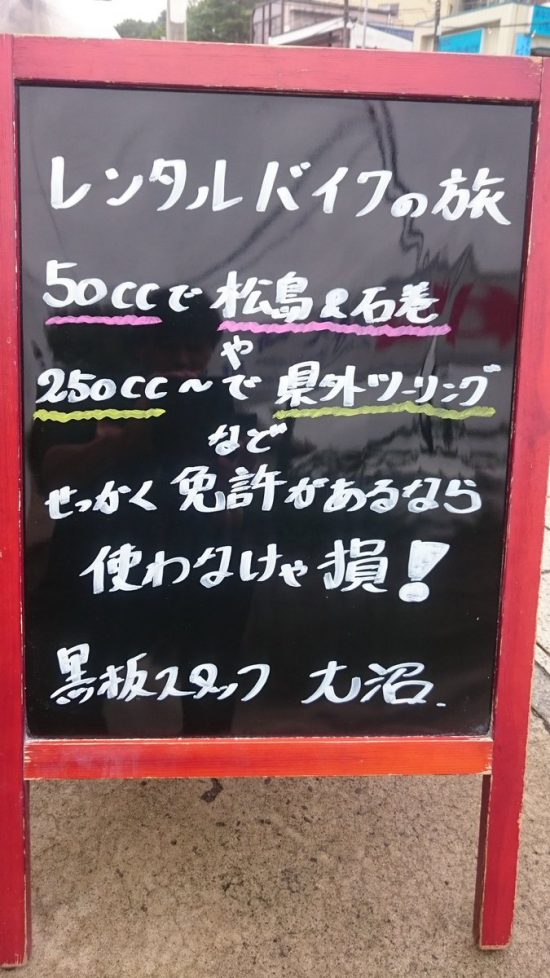 レンタルバイクの旅
50ccで松島&石巻
や
250cc～で県外ツーリング
など
せっかく免許があるなら
使わなけゃ損!
黒板スタッフ 大沼.